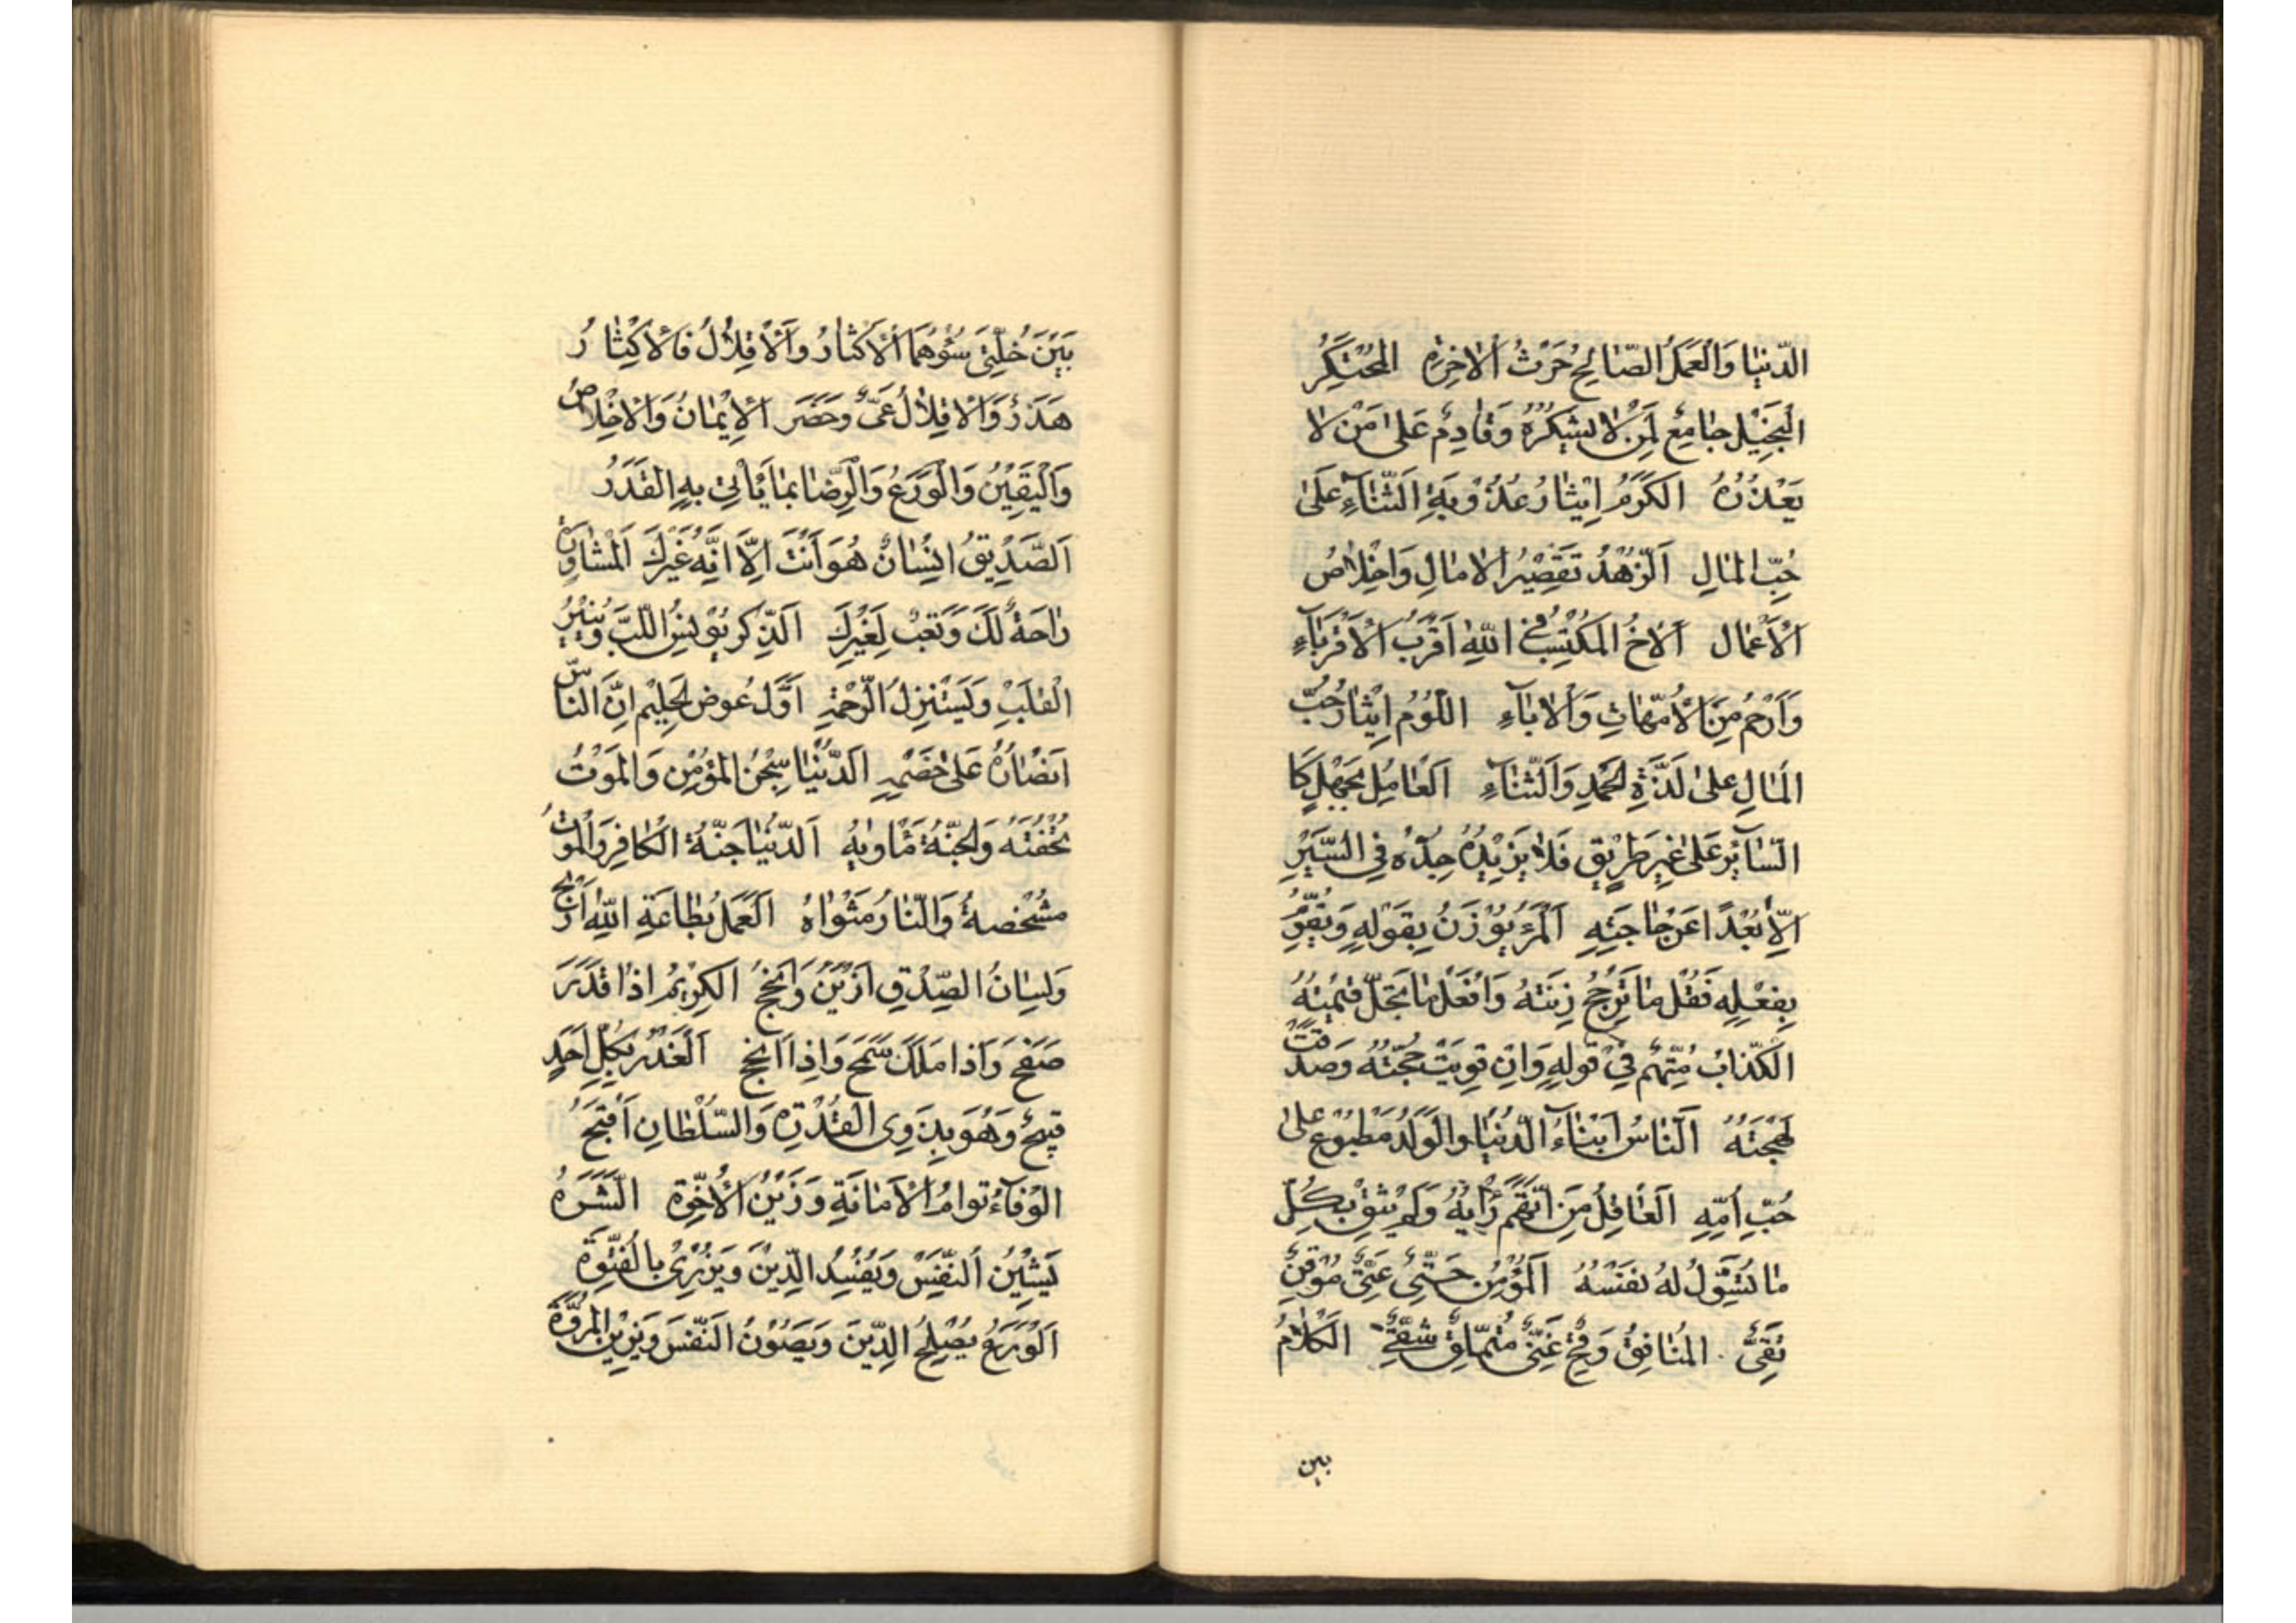 الدّنيا وَالْعَمَلُ الصّالِحُ حَرْثُ الاٰخِرَةِ المُحْتَكِرُ
الْبَخِيْلُ جامِعٌ لِمَنْ لا يَشْكُرُهُ وَقادِمٌ عَلىٰ مَنْ لا
يَعْذُرُهُ الكَرَمُ اِيثارُ عُذُوبَةِ الثَّناۤءِ عَلىٰ
حُبِّ المالِ اَلزُّهْدُ تَقْصِيْرُ الاٰمالِ وَاِخْلاصُ
الْاَعْمال اَلاَخُ المُكْتَسَبُ فِي اللّٰهِ اَقْرَبُ الْاَقْرَباۤءِ
وَاَرْحَمُ مِنَ الْاُمَّهاتِ وَالْاٰباۤءِ اللُّؤْمُ اِيْثارُ حُبِّ
المالِ عَلىٰ لَذَّةِ الحَمْدِ وَالثَّناۤءِ اَلعامِلُ بِجَهْلٍ كَا
السّاۤئِرِ عَلىٰ غَيرِ طَرِيْقٍ فَلا يَزِيْدُهُ جِدُّهُ فِي السَّيْرِ
اِلاّ بُعْدًا عَنْ حاجَتِهِ اَلْمَرْءُ يُوْزَنُ بِقَوْلِهِ وَيُقَوَّمُ
بِفِعْلِهِ فَقُلْ ما تَرْجَحُ زِنَتُهُ وَافْعَلْ ما تَجِلُّ قِيْمَتُهُ
الكَذّابُ مُتَّهَمٌ فِيْ قَولِهِ وَاِنْ قَوِيَتْ حُجَّتُهُ وَصَدَقَتْ
لَهْجَتُهُ اَلنّاسُ اَبْناۤءُ الدُّنْيا وَالوَلَدُ مَطْبُوْعٌ عَلىٰ
حُبِّ اُمِّهِ اَلعاقِلُ مَنِ اتَّهَمَ رَاْيَهُ وَلَمْ يَثِقْ بِكُلِّ
ما تُسَوِّلُ لَهُ نَفْسُهُ اَلمُؤْمِنُ حَيِيٌّ غَنِيٌّ مُوْقِنٌ
تَقِيٌّ المُنافِقُ وَقِحٌ غَبِيٌّ مُتَمَلِّقٌ شَقِيٌّ الكَلامُ
بين
بَيْنَ خُلَّتَيْ سُوْءٍ هُمَا الْاِكْثارُ وَالْاِقْلالُ فَالْاِكْثارُ
هَذَرٌ وَالْاِقْلالُ عِيٌّ وَحَصَرٌ الْاِيْمانُ وَالْاِخْلاصُ
وَالْيَقِيْنُ وَالْوَرَعُ وَالرِّضا بِما يَاْتِي بِهِ القَدَرُ
اَلصَّدِيْقُ اِنْسانٌ هُوَ اَنْتَ اِلاّ اَنَّهُ غَيْرُكَ اَلْمُشاوَرَةُ
راحَةٌ لَكَ وَتَعَبٌ لِغَيْرِكَ اَلذِّكْرُ يُوْنِسُ اللُّبَّ وَيُنِيْرُ
الْقَلْبَ وَيَسْتَنْزِلُ الرَّحْمَةَ اَوَّلُ عِوَضِ الحَلِيْمِ اَنَّ النّاسَ
اَنْصارُهُ عَلىٰ خَصْمِهِ اَلدُّنْيا سِجْنُ المُؤْمِنِ وَالمَوْتُ
تُحْفَتُهُ وَالجَنَّةُ مَاْويٰهُ اَلدُّنْيا جَنَّةُ الْكافِرِ وَالْمَوْتُ
مُشْخِصُهُ وَالنّارُ مَثْواهُ اَلْعَمَلُ بِطاعَةِ اللّٰهِ اَرْبَحُ
وَلِسانُ الصِّدْقِ اَزْيَنُ وَاَنْجَحُ الكَرِيْمُ اِذا قَدَرَ
صَفَحَ وَاِذا مَلَكَ سَمَحَ وَاِذا اَنْجَحَ اَلْغَدْرُ بِكُلِّ اَحَدٍ
قَبِيْحٌ وَهُوَ بِذَوِى الْقُدْرَةِ وَالسُّلْطانِ اَقْبَحُ
الوَفاۤءُ تَوْاَمُ الْاَمانَةِ وَزَيْنُ الْاُخُوَّةِ الشَّرَهُ
يَشِيْنُ النَّفْسَ وَيُفْسِدُ الدِّيْنَ وَيَزْرِىْ بِالْفُتُوَّةِ
اَلْوَرَعُ يُصْلِحُ الدِّيْنَ وَيَصُوْنُ النَّفْسَ وَيَزِيْنُ المُرُوَّةَ